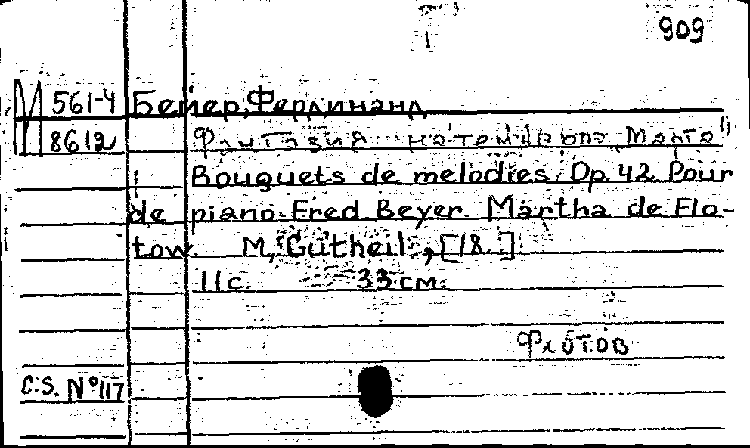 909
М 561-4 Бейер, Фердинанд
8612 Фантазия на темы оп. "Марта"
Bouquets de melodies. Op. 42. Pour
de piano Fred Beyer. Martha de Flo-
tow. М, Gutheil, [18..]
11 с. 33 см.
Флотов
C.S. № 117